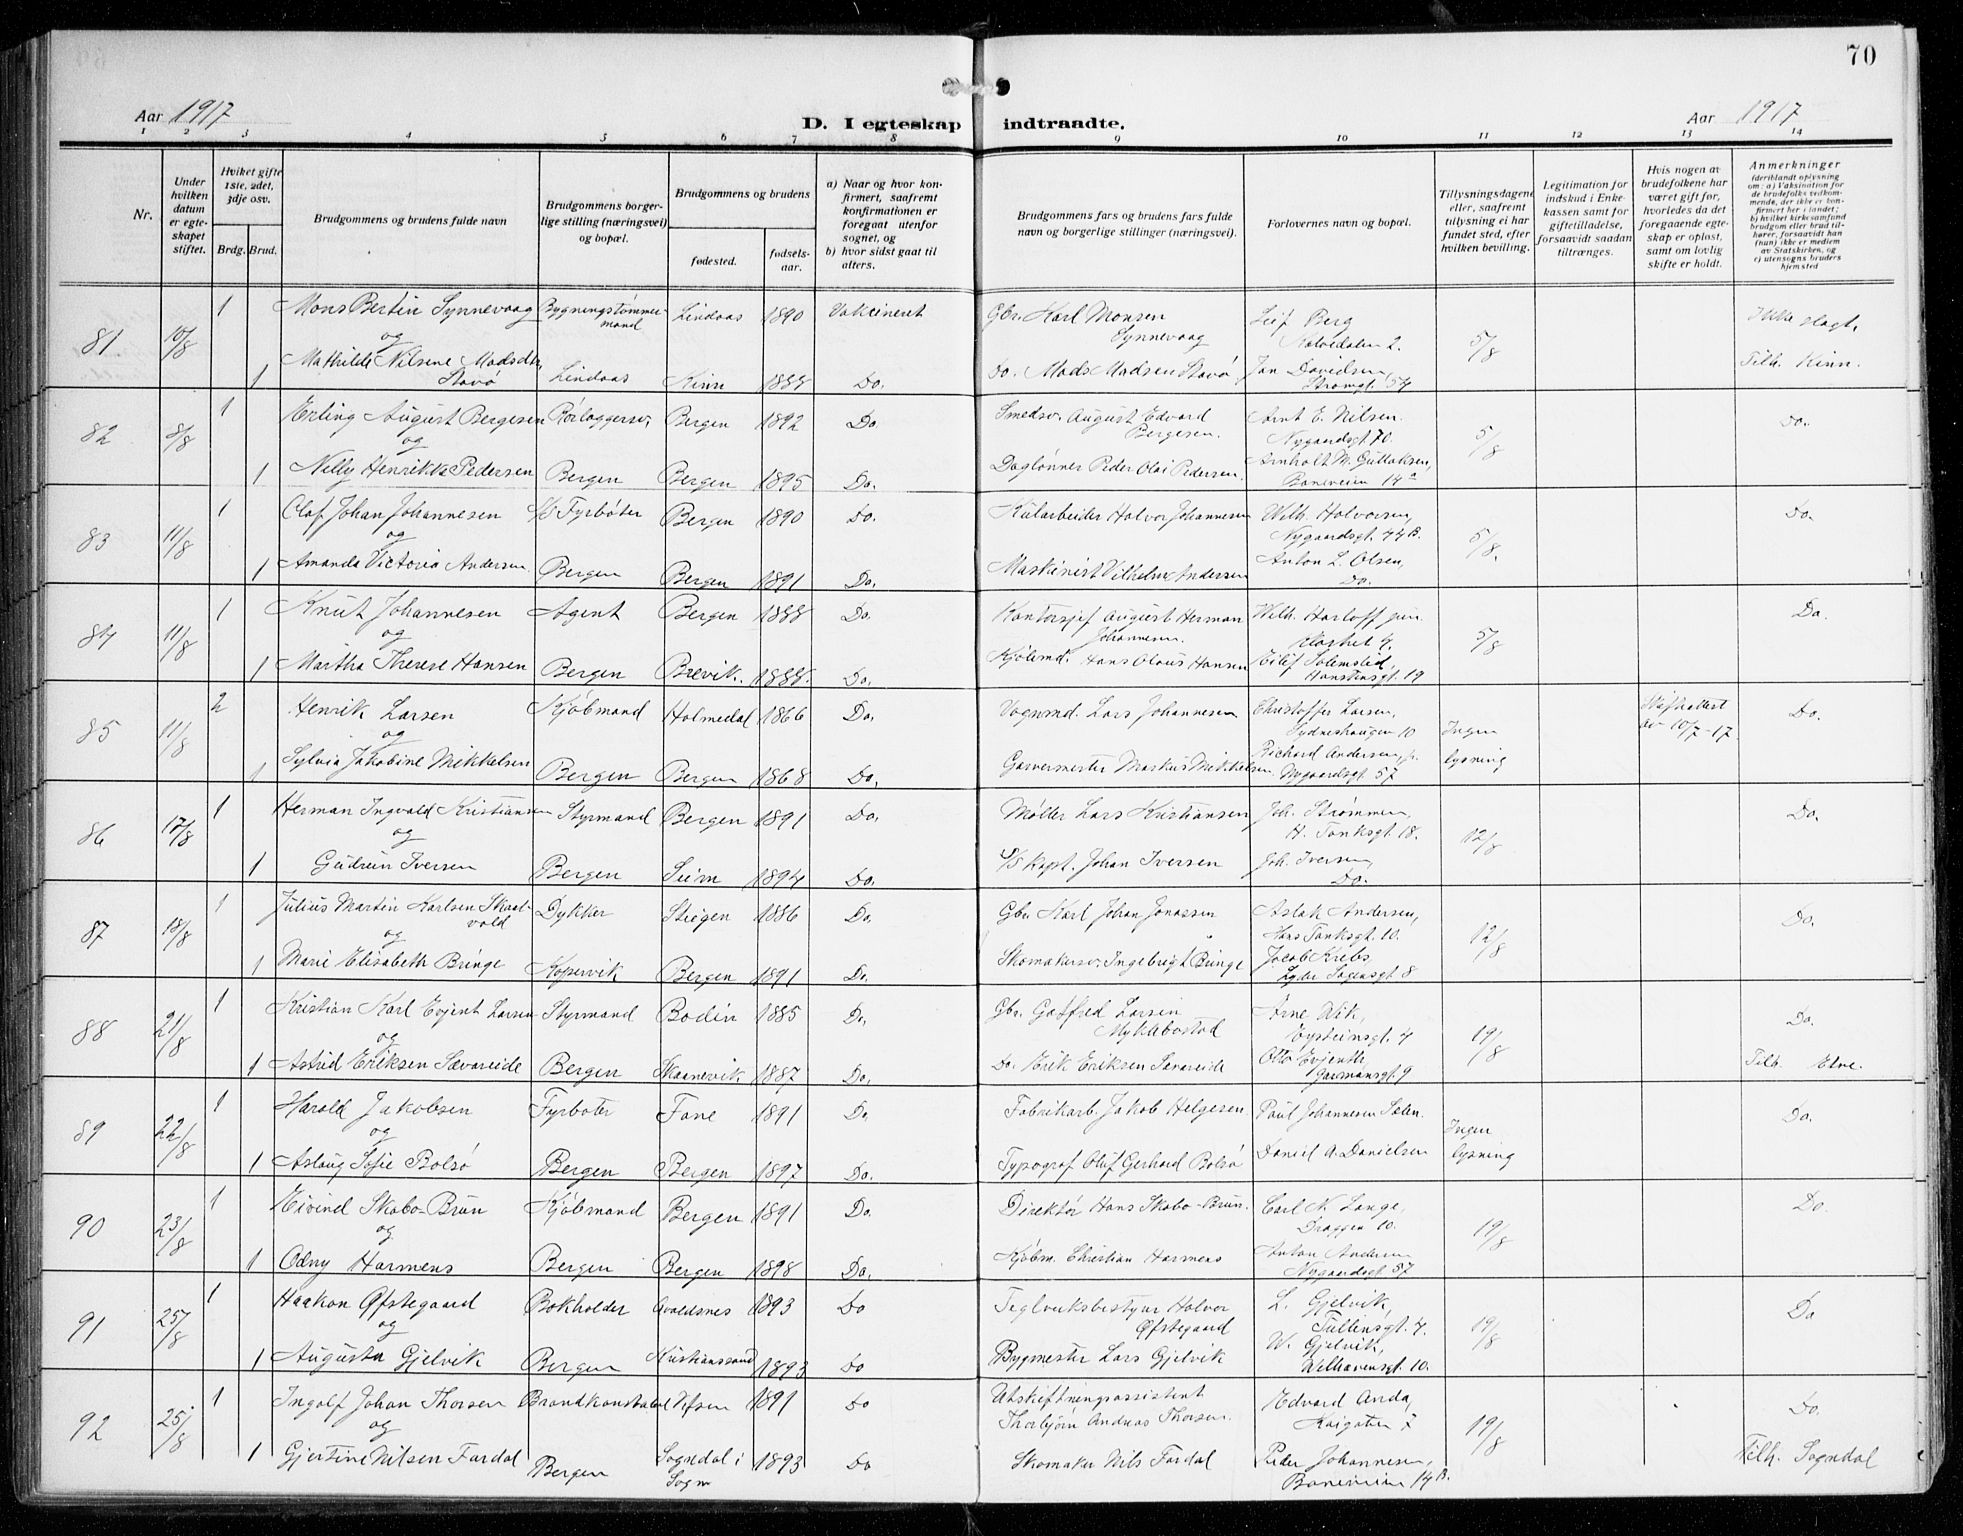 70
Aar 1917
D. I egteskap indtraadte.
Aar 1917
1 2 3 4 5 6 7 8 9 10 11 12 13 14
Nr.
Under hvilken datum er egteskapet stiftet.
Hviket gifte 1ste, 2det, 3dje osv.
Brdg. Brud.
Brudgommens og brudens fulde navn
Brudgommens borgerlige stilling (næringsvei) og bopæl.
Brudgommens og brudens
fødested.
fødselsaar.
a) Naar og hvor konfirmert, saafremt konfirmationen er foregaat utenfor sognet, og
b) hvor sidst gaat til alters.
Brudgommens fars og brudens fars fulde navn og borgerlige stillinger (næringsvei).
Forlovernes navn og bopæl.
Tillysningsdagene eller, saafremt tillysning ei har fundet sted, efter hvilken bevilling.
Legitimation for indskud i Enkekassen samt for giftetilladelse, forsaavidt saadan tiltrænges.
Hvis nogen av brudefolkene har været gift før, hvorledes da det foregaaende egteskap er opløst, samt om lovlig skifte er holdt.
Anmerkninger
(deriblandt oplysning om: a) Vaksination for de brudefolks vedkommende, der ikke er konfirmert her i landet; b) hvilket kirkesamfund brudgom eller brud tilhører, forsaavidt han (hun) ikke er medlem av Statskirken, og c) utensogns bruders hjemsted
81 10/8 1 Mons Bertin Synnevaag Bygningstømmermand Lindaas 1890 Vakcineret Gbr. Karl Monsen Synnevaag Leif Berg 5/8 Ikke slegt.
og
1 Mathilde Nilsene Madsdtr. Stavø Lindaas Kinn 1888 Do. Do. Mads Madsen Stavø Jan Davidsen, Strømgt. 54 Tilh. Kinn.
82 8/8 1 Erling August Bergesen Rørlæggersv. Bergen 1892 Do. Smedsv. August Edvard Bergesen. Arnt E. Nilsen. Nygaardsgt. 70. 5/8 Do.
og
1 Nelly Henrikke Pedersen Bergen Bergen 1895 Do. Daglønner Peder Olai Pedersen. Arnholt M. Gullaksen, 14a
83 11/8 1 Olaf Johan Johannesen S/S Fyrbøter Bergen 1890 Do. Kularbeider Halvor Johannesen Wilh. Halvorsen, Nygaardsgt. 44B. 5/8. Do.
og
1 Amanda Victoria Andersen. Bergen Bergen 1891 Do. Maskinist Vilhelm Andersen Anton L. Olsen, Do.
84 11/8 1 Knut Johannesen Agent Bergen 1888 Do. Kontorsjef August Herman Johannesen. Wilh. Harloff jun. Klostret 9. 5/8 Do.
og
1 Martha Therese Hansen Bergen Brevik. 1888. Do. Kjølemd. Hans Olaus Hansen Eilif Solemslid, Hansteensgt. 19
85 11/8 2 Henrik Larsen Kjøbmand Holmedal 1866 Do. Vognmd. Lars Johannesen Christoffer Larsen, Sydneshaugen 10 Ingen lysning Skifteattest av 10/7-17. Do.
og
1 Sylvia Jakobine Mikkelsen Bergen Bergen 1868 Do. Garvermester Markus Mikkelsen Richard Andersen, jr. Nygaardsgt. 57
86 17/8 1 Herman Ingvald Kristiansen Styrmand Bergen 1891 Do. Møller Lars Kristiansen Joh. Strømmen, H. Tanksgt. 18. 12/8 Do.
og
1 Gudrun Iversen Bergen Seim 1894 Do. S/S kapt. Johan Iversen Joh. Iversen, Do.
87 18/8 1 Julius Martin Karlsen Skaalvold Dykker Steigen 1886 Do. Gbr. Karl Johan Jonassen Aslak Andersen, Hans Tanksgt. 10. 12/8 Do.
og
1 Marie Elisabeth Bringe Kopervik Bergen 1891 Do. Skomakersv. Ingebrigt Bringe Jacob Krebs, Lyder Sagensgt. 8
88 21/8 1 Kristian Karl Evjent Larsen Styrmand Bodin 1885 Do. Gbr. Gotfred Larsen Myklebostad Arne Wik, Eysteinsgt. 4 19/8 Do.
og
1 Astrid Eriksen Sævareide Bergen Skaanevik 1887 Do. Do. Erik Eriksen Sævareide Otto Evjenth, Garmansgt. 9 Tilh. Etne.
89 22/8 1 Harald Jakobsen Fyrbøter Fane 1891 Do Fabrikarb. Jakob Helgesen. Paul Johannesen Sælen. Ingen lysning Do.
og
1 Aslaug Sofie Bolsø Bergen Bergen 1897 Do. Typograf Oluf Gerhard Bolsø Daniel A. Danielsen
90 23/8 1 Eivind Skabo-Brun Kjøbmand Bergen 1891 Do. Direktør Hans Skabo-Brun. Carl N. Lange, Dræggen 10. 19/8 Do.
og
1 Odny Harmens Bergen Bergen 1898 Do. Kjøbm. Christian Harmens Anton Andersen Nygaardsgt. 57
91 25/8 1 Haakon Øfstegaard Bokholder Avaldsnes 1893 Do Teglverksbestyrer Halvor Øfstegaard L. Gjelvik, Tullinsgt. 4. 19/8 Do
og
1 Augusta Gjelvik Bergen Kristianssand 1893 Do Bygmester Lars Gjelvik W. Gjelvik, Welhavensgt. 10.
92 25/8 1 Ingolf Johan Thorsen Brandkonstabel Vefsen 1891 Do Utskiftningsassistent Thorbjørn Andreas Thorsen. Edvard Anda, 19/8 Do.
og
1 Gjertine Nilsen Fardal Bergen Sogndal i Sogn 1893 Do Skomaker Nils Fardal Peder Johannesen, 14B. Tilh. Sogndal